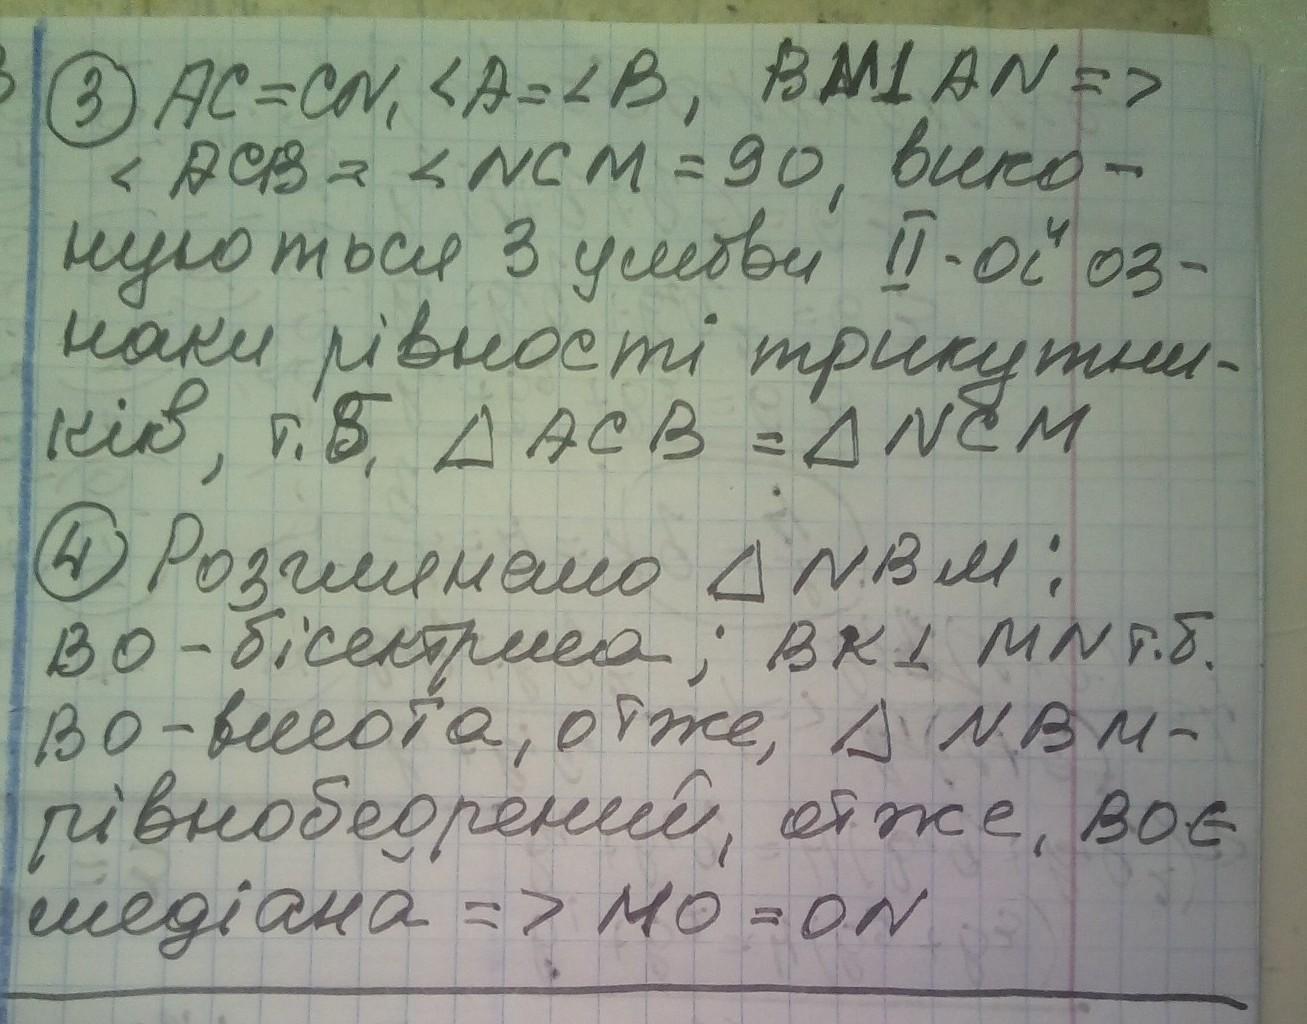 ③ AC=CN, <A=<B, BM⊥AN =>
< ACB = < NCM = 90, вико-
нуються 3 умови II-ої оз-
наки рівності трикутни-
ків, т.б. △ ACB = △ NCM
④ Розглянемо △ NBM:
BO - бісектриса; BK⊥ MN т.б.
BO - висота, отже, △ NBM -
рівнобедрений, отже, BO є
медіана => MO = ON